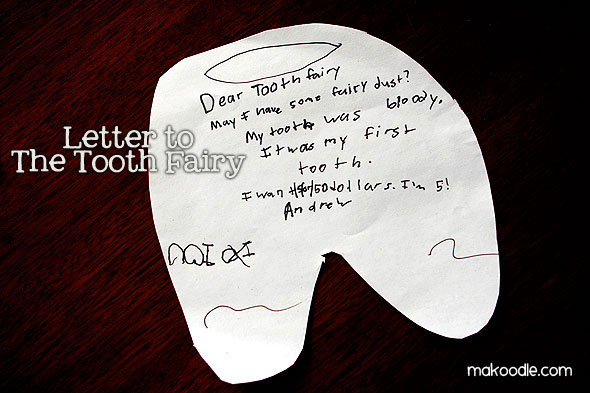 Letter to
The Tooth Fairy
Dear Tooth fairy
May I have some fairy dust?
My tooth was bloody.
It was my first
tooth.
I want dollars. I'm 5!
Andrew
makoodle.com